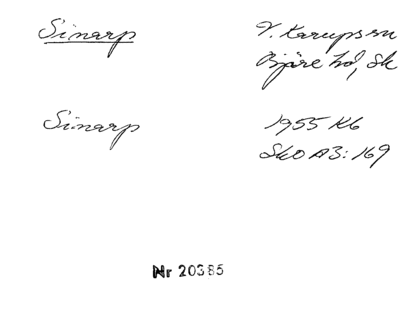 Sinarp
V. Karups sn
Bjäre hd, Sk
Sinarp
1955 K6
Sko A3:169
Nr 20385